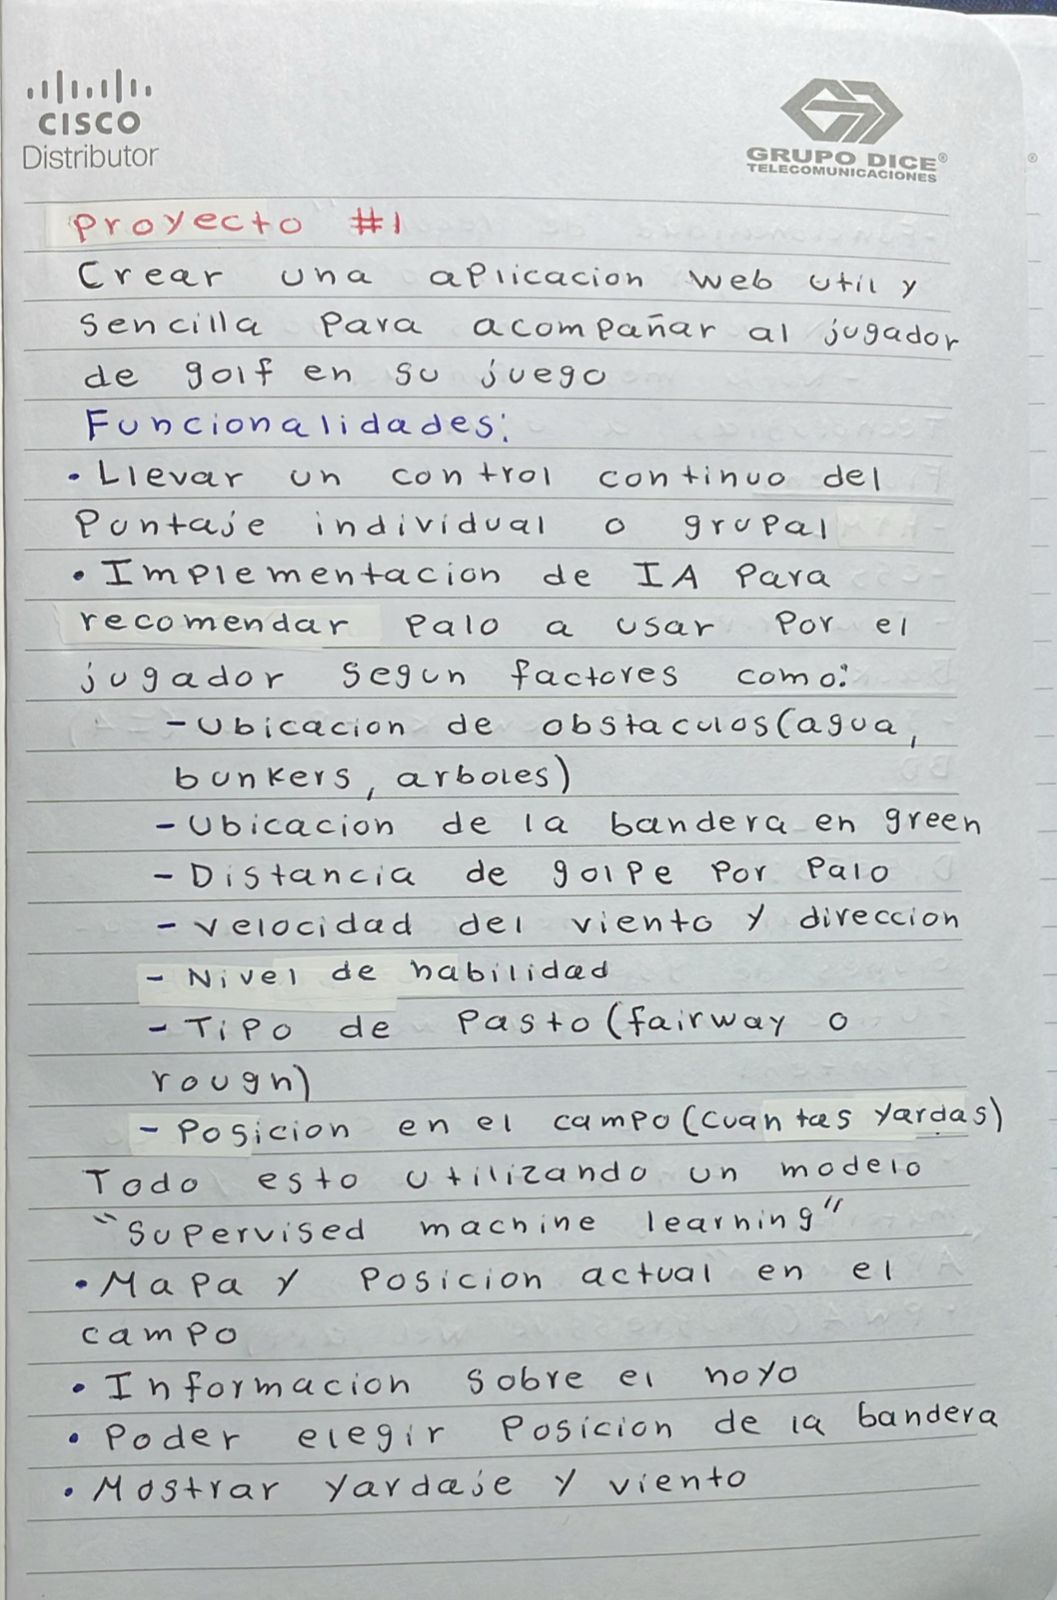 CISCO
Distributor
GRUPO DICE®
TELECOMUNICACIONES
®
Proyecto #1
Crear una aplicacion web util y
sencilla para acompañar al jugador
de golf en su juego
Funcionalidades:
• Llevar un control continuo del
Puntaje individual o grupal
• Implementacion de IA para
recomendar palo a usar por el
jugador segun factores como:
- Ubicacion de obstaculos (agua,
bunkers, arboles)
- Ubicacion de la bandera en green
- Distancia de golpe por palo
- velocidad del viento y direccion
- Nivel de habilidad
- Tipo de pasto (fairway o
rough)
- Posicion en el campo (cuantas yardas)
Todo esto utilizando un modelo
"Supervised machine learning"
• Mapa y posicion actual en el
campo
• Informacion sobre el hoyo
• Poder elegir posicion de la bandera
• Mostrar yardaje y viento